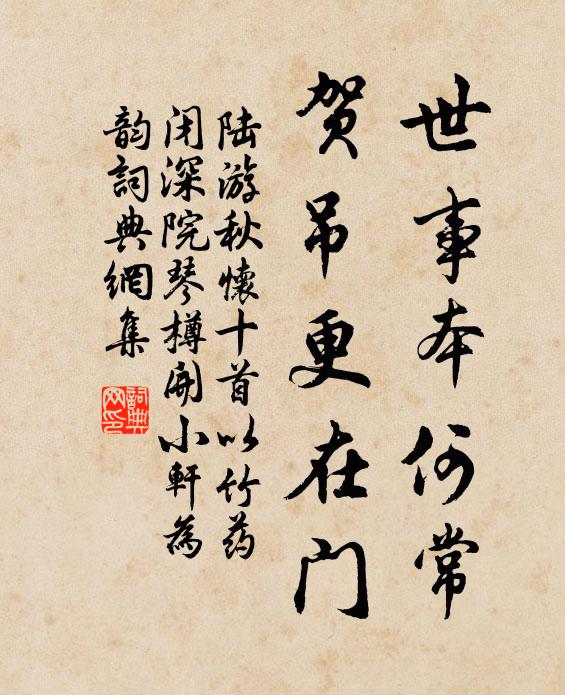 世事本何常
贺吊更在门
陸游秋懷十首以竹药
闭深院琴樽開小軒為
韵詞典網集
詞典
网印